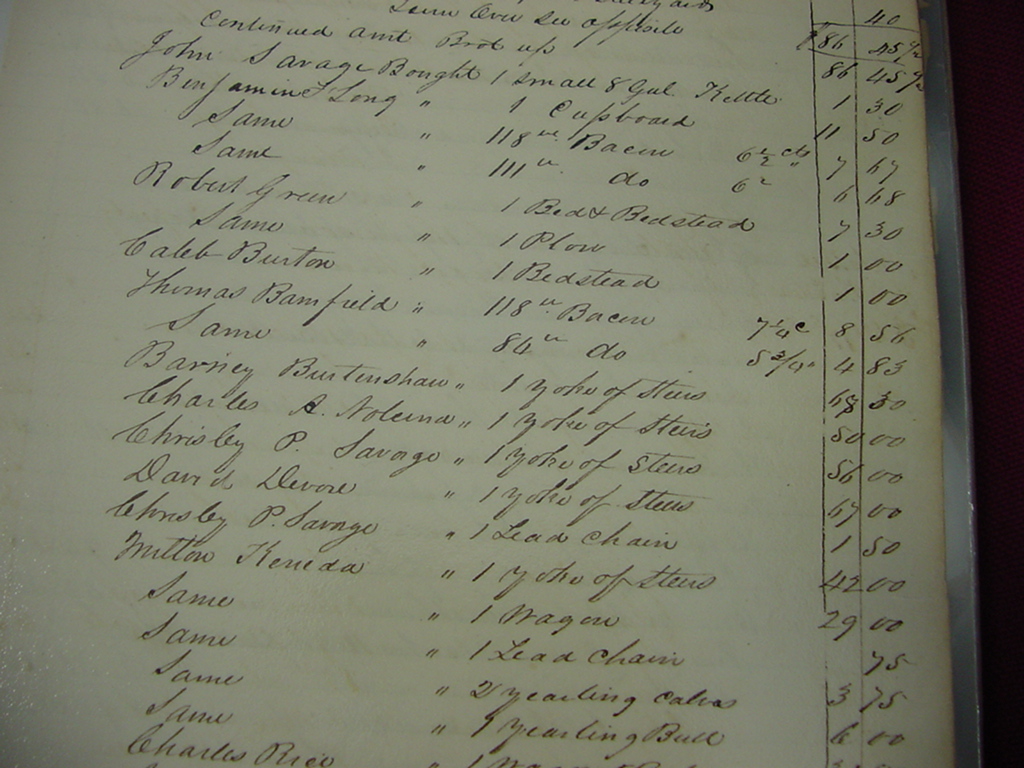 40
Same Over see opposite
Continued amt Brot up $86 45 1/2
86 45 1/2
John Savage Bought 1 small 8 Gal Kettle 1 30
Benjamin F Long " 1 Cupboard 11 50
Same " 118 lbs Bacon 6 1/2 cts 7 67
Same " 111 lbs do 6 c 6 68
Robert Green " 1 Bed & Bedstead 7 30
Same " 1 Plow 1 00
Caleb Burton " 1 Bedstead 1 00
Thomas Bamfield " 118 lbs Bacon 7 1/4 c 8 56
Same " 84 lbs do 5 3/4 " 4 83
Barney Burtenshaw " 1 yoke of steers 68 30
Charles A. " 1 yoke of Steers 50 00
Chrisley P. Savage " 1 yoke of steers 56 00
David Devore " 1 yoke of steers 67 00
Chrisley P. Savage " 1 Lead chain 1 50
Milton Keneda " 1 yoke of steers 42 00
Same " 1 Wagon 29 00
Same " 1 Lead chain 75
Same " 2 yearling calves 3 75
Same " 1 yearling Bull 6 00
Charles Rice 1